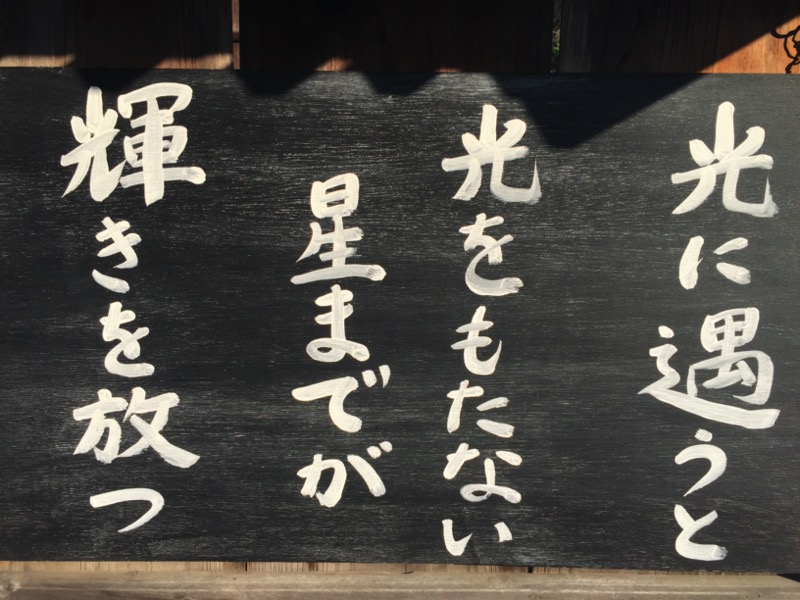 光に遇うと
光をもたない
星までが
輝きを放つ